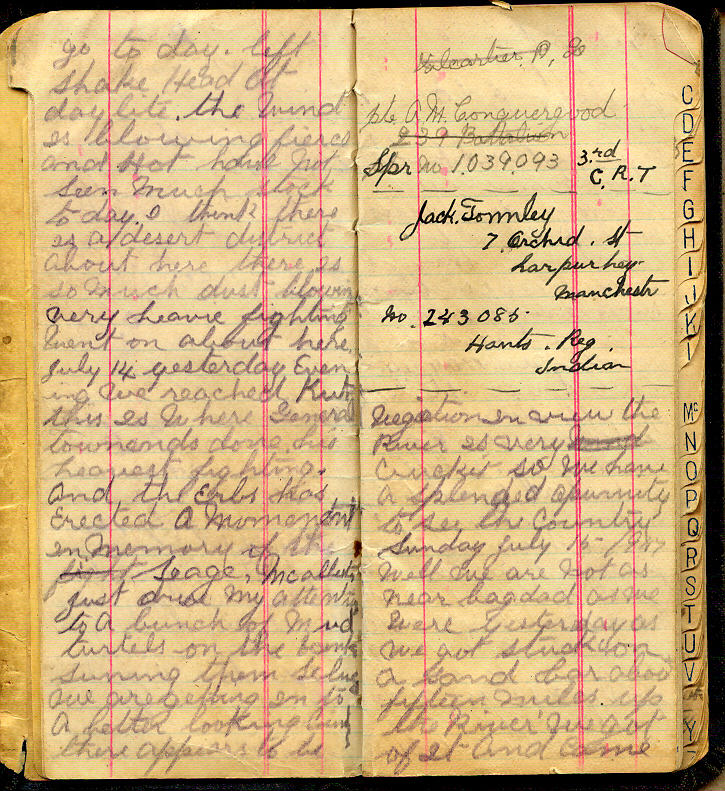 go to day. left
Shake Head at
day lite. the Wind
is blowing fierce
and Hot have not
Seen Much stock
to day. I think there
is a desert district
about here there is
so much dust blowing
very heavie fighting
Went on about here.
July 14 yesterday Even
ing We reached Kut
this is Where General
townands done his
heavest fighting.
And the Erbs Has
Erected A Moment
in Memory of the
Seage, Mcallest
just drue My attent
to A bunch of Mud
turtels on the bank
suning them selves
We are geting in to
A better looking
there appears to be
Valcartier P, Q
pte A. M. Conquergood
239 Battalion
Spr No 1039093 3.rd
C. R. T
Jack. Tomnley
7. Orchrd. St
harpurhey
Manchestr
No. 243085.
Hants. Reg.
Indian
Vegation in view the
River is very
Crucket so We have
A splended opurnuty
to see the Country
Sunday July 15 1917
Well We are Not as
near bagdad as we
Were yesterday as
We got stuck on
a Sand bar about
fifteen Miles up
the River We got
of it and Came
C
D
E
F
G
H
I
J
K
L
Mc
N
O
P
Q
R
S
T
U
V
W
Y